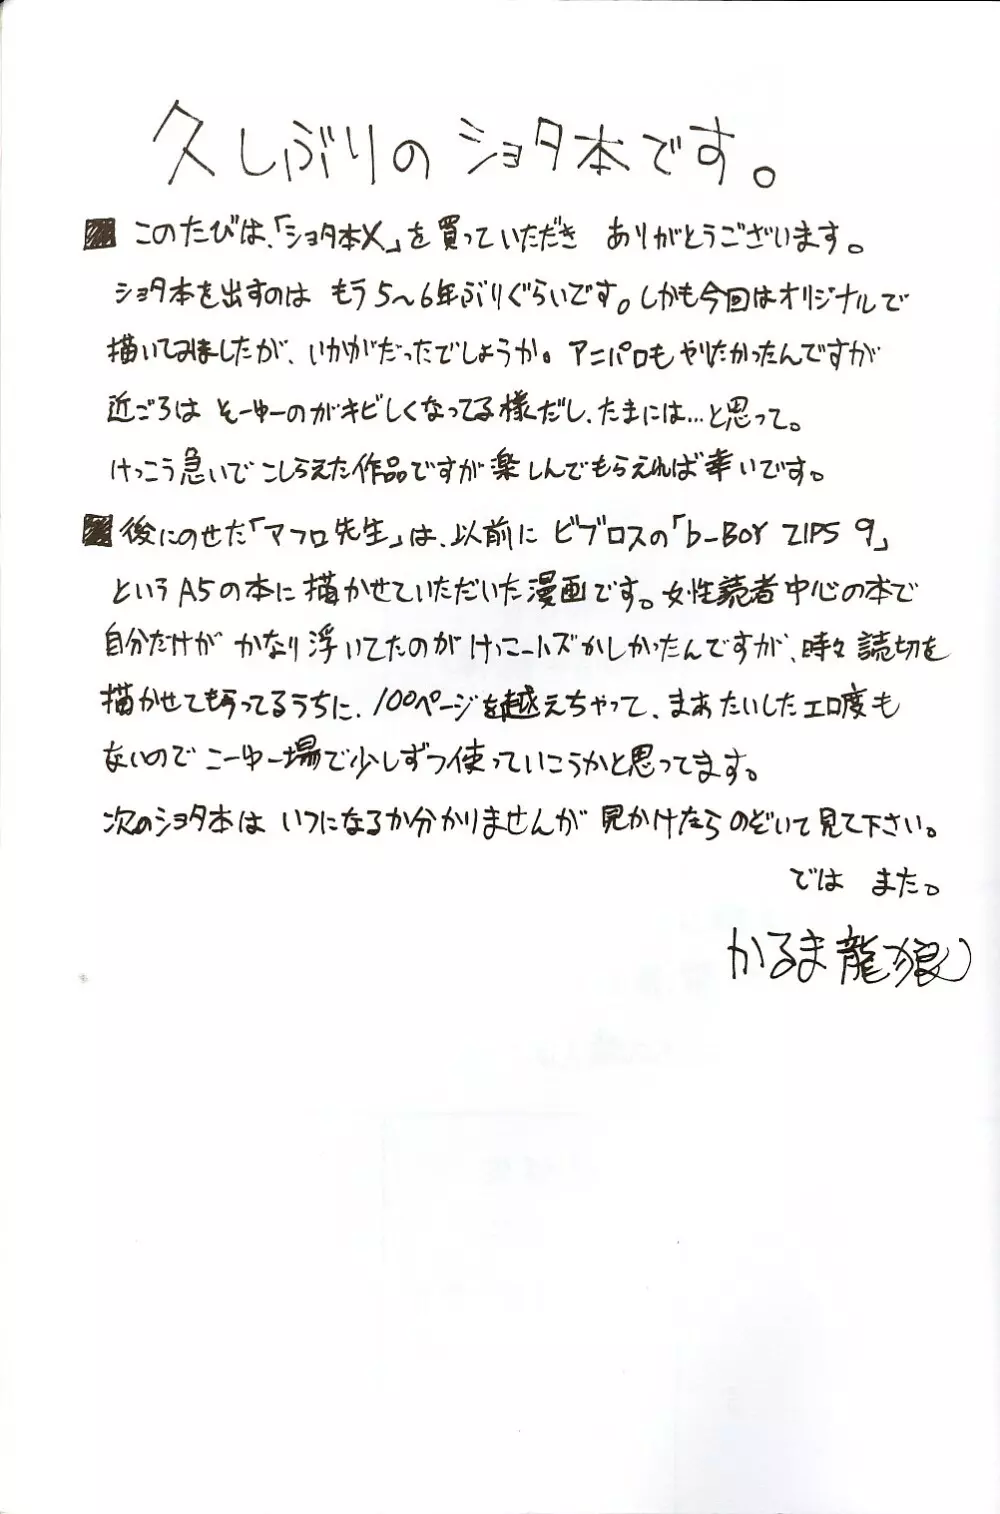 久しぶりのショタ本です。
■ このたびは、「ショタ本X」を買っていただき ありがとうございます。
ショタ本を出すのは もう5〜6年ぶりぐらいです。しかも今回はオリジナルで
描いてみましたが、いかがだったでしょうか。アニパロもやりたかったんですが
近ごろは そーゆーのがキビしくなってる様だし、たまには…と思って。
けっこう急いでこしらえた作品ですが楽しんでもらえれば幸いです。
■ 後にのせた「アフロ先生」は、以前に ビブロスの「b-BOY ZIPS 9」
というA5の本に描かせていただいた漫画です。女性読者中心の本で
自分だけが かなり浮いてたのがけっこーハズかしかったんですが、時々読切を
描かせてもらってるうちに、100ページを越えちゃって、まあたいしたエロ度も
ないのでこーゆー場で少しずつ使っていこうかと思ってます。
次のショタ本は いつになるか分かりませんが 見かけたら のぞいて見て下さい。
では また。
かるま龍狼